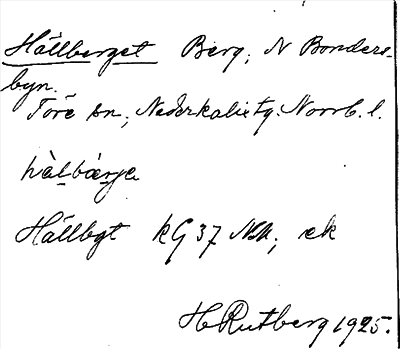 Hällberget Berg, N Bonders-
byn.
Töre sn, Nederkalix tg. Norrb. l.
hälbärje
Hällbgt kG 37 NM; ek
H Rutberg 1925.